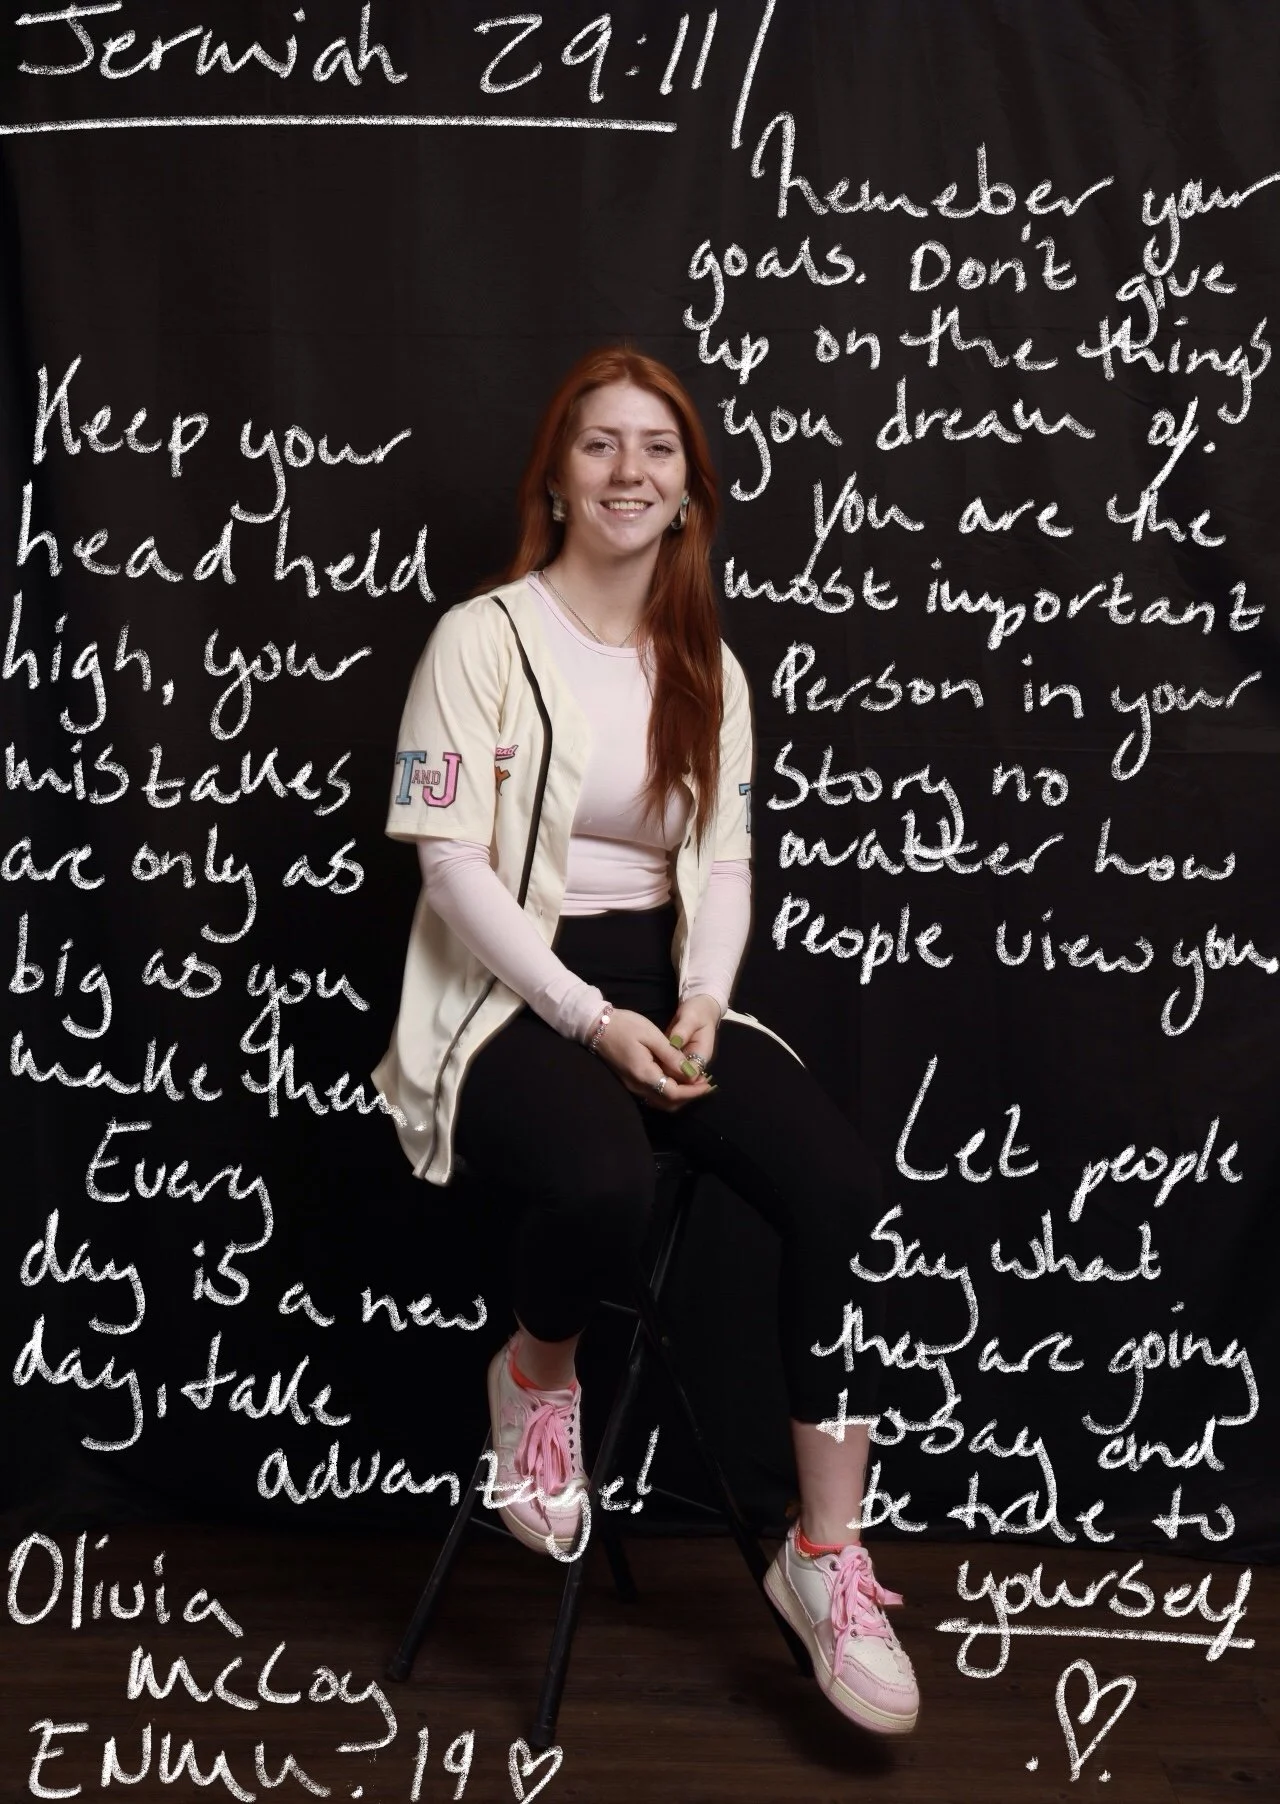 Jermiah 29:11/
Remeber your
goals. Don't give
up on the things
you dream of.
You are the
most important
Person in your
Story no
matter how
People view you.
Let people
Say what
they are going
to say and
be true to
yourself
Keep your
head held
high, your
mistakes
are only as
big as you
make them.
Every
day is a new
day, take
advantage!
Olivia
McCoy
ENMU. 19
T AND J